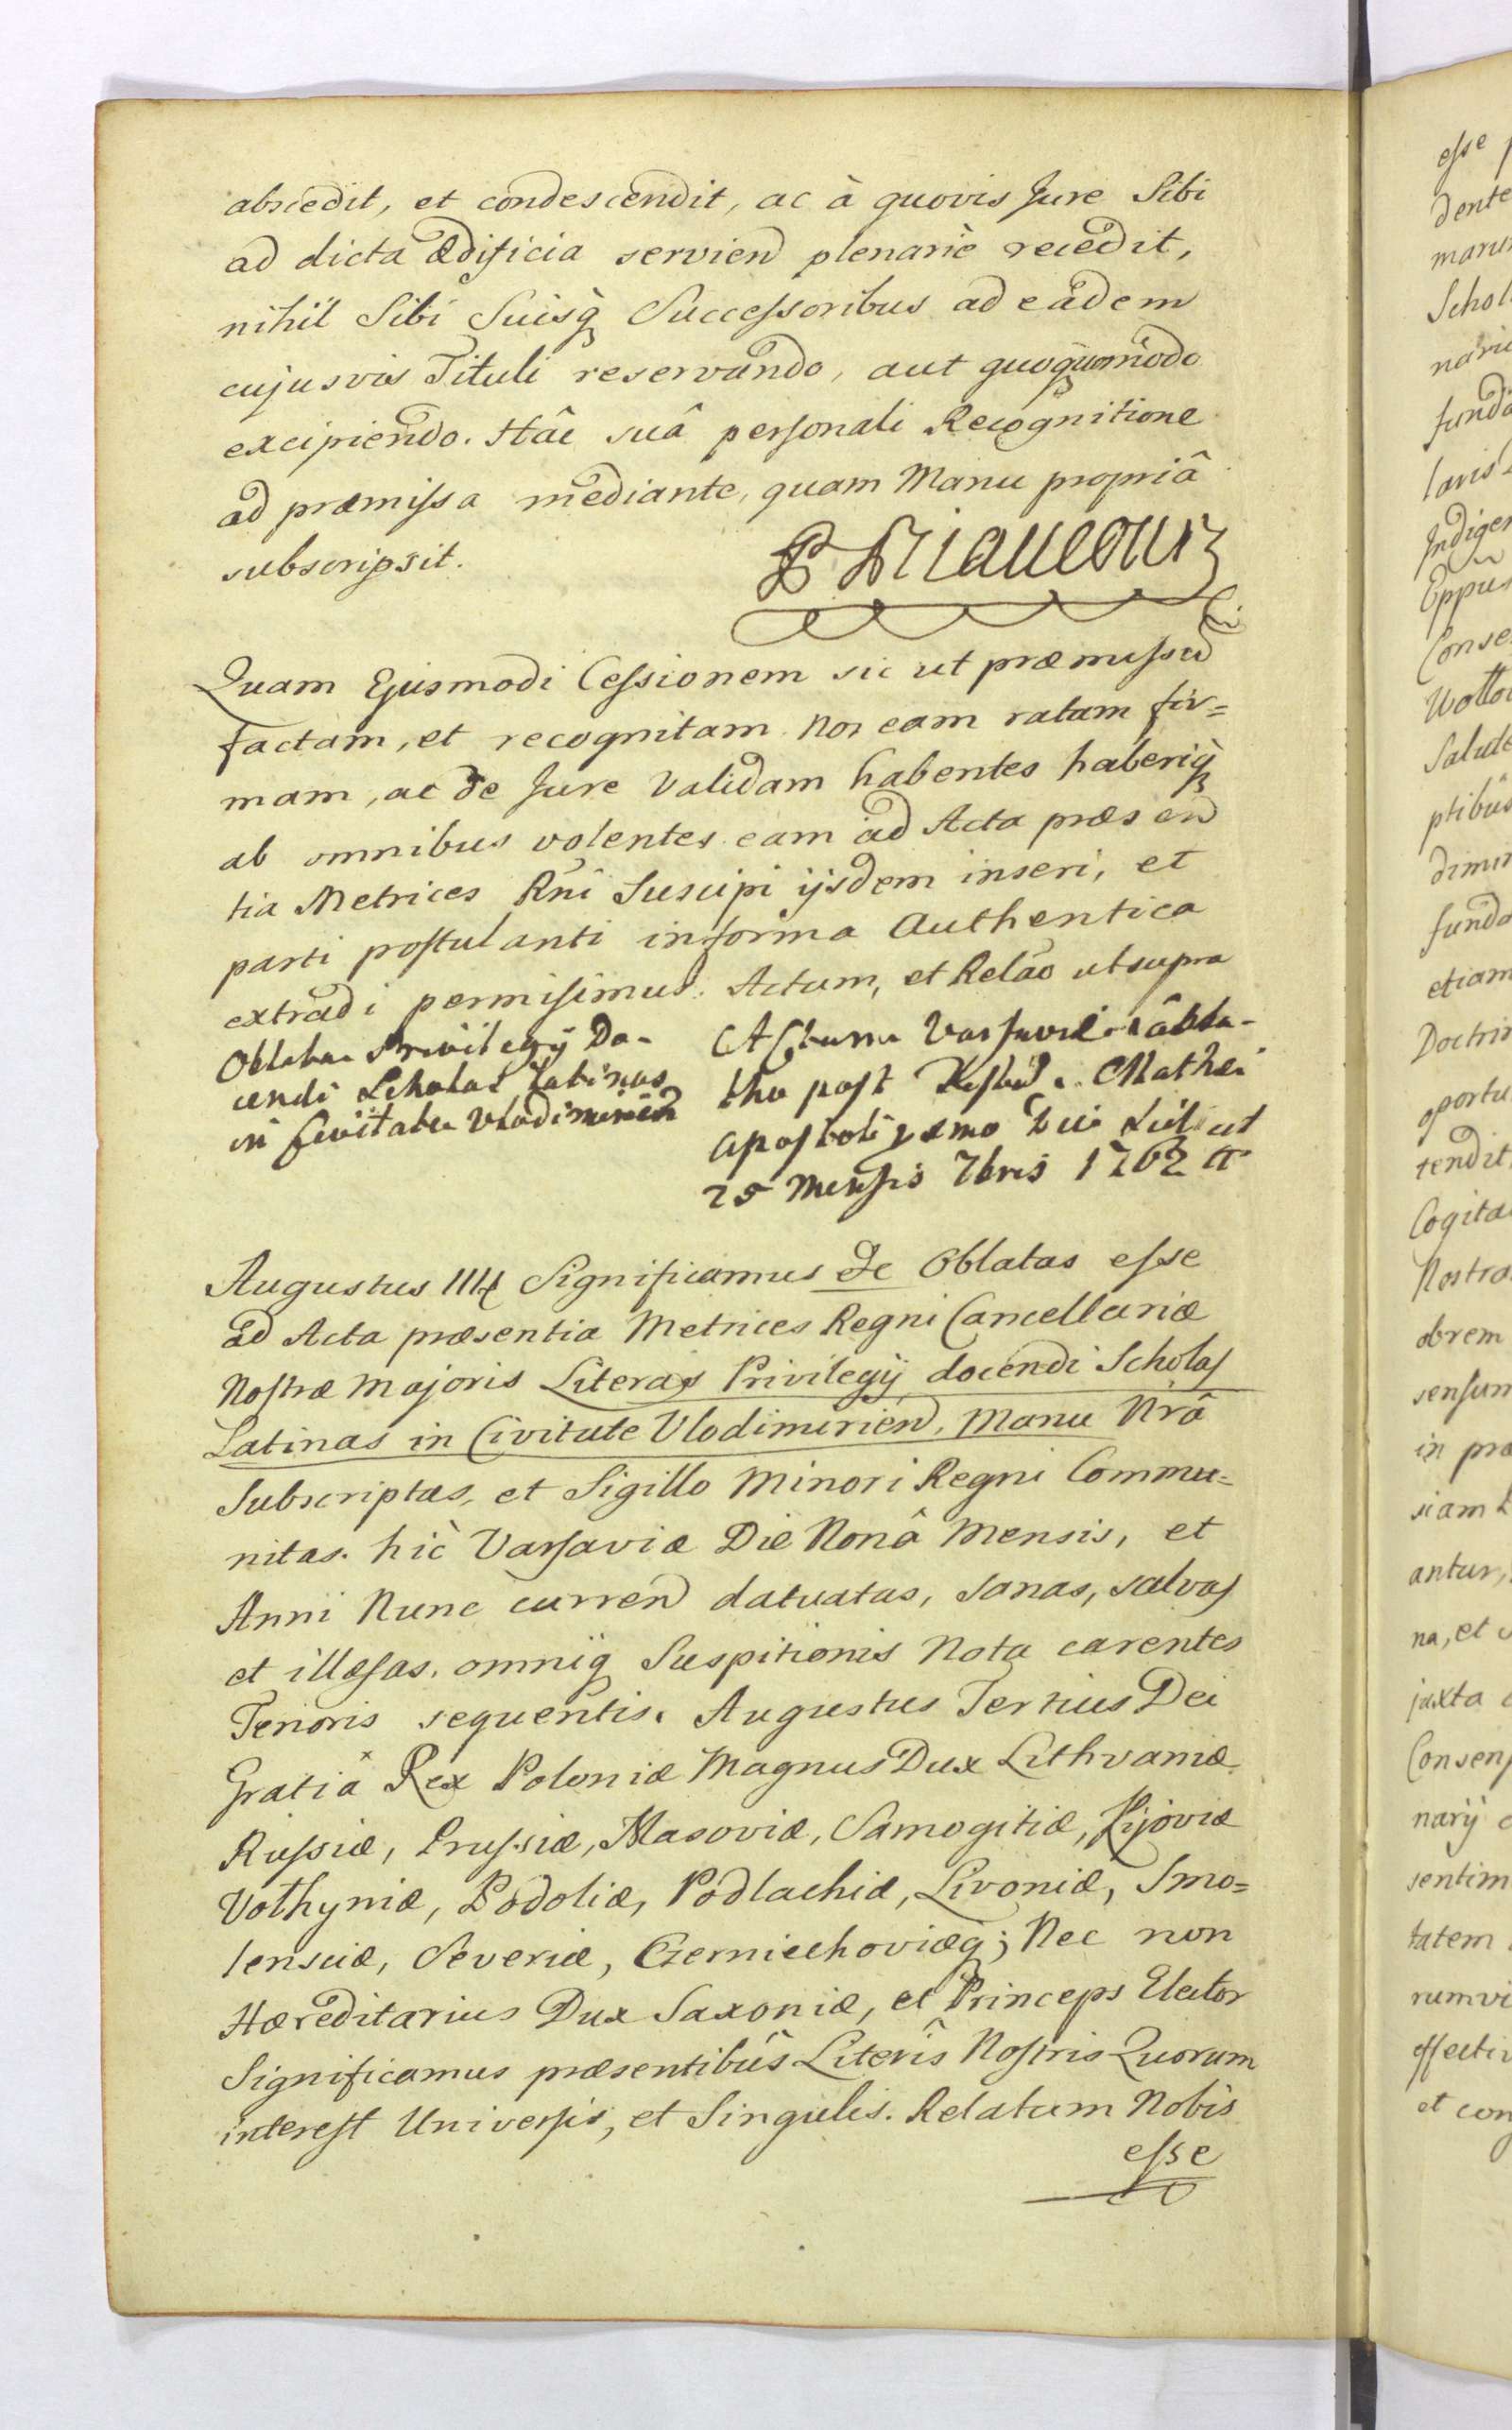 abscedit, et condescendit, ac à quovis Jure Sibi
ad dicta ædificia serviend plenariè recedit,
nihil Sibi Suisq Successoribus ad eadem
cujusvis Tituli reservando, aut quoquomodo
excipiendo. Hâc suâ personali Recognitione
ad præmissa mediante, quam Manu propriâ
subscripsit.
P Riaucour
Quam Ejusmodi Cessionem sic ut præmissū
factam, et recognitam Nos eam ratam fir=
mam, ac de Jure Validam habentes haberiq
ab omnibus volentes eam ad Acta præsen
tia Metrices Rñi Suscipi ijsdem inseri, et
parti postulanti in forma Authentica
extradi permisimus. Actum, et Relão ut supra
Oblata Privilegÿ Do-
cendi Scholas Latinas
in Civitate Vladimirien
Actum Varsaviæ Sabba-
tho post Festū S. Mathæi
Apostoli pxmo Die Scilicet
25 Mensis 7bris 1762 A
Augustus IIItj Significamus &c Oblatas esse
ad Acta præsentia Metrices Regni Cancellariæ
Nostræ Majoris Literas Privilegij docendi Scholas
Latinas in Civitate Vlodimirien, Manu Nrâ
Subscriptas, et Sigillo Minori Regni Commu=
nitas. hic Varsaviæ Die Nonâ Mensis, et
Anni Nunc curren datuatas, sanas, salvas
et illæsas, omniq Suspitionis Nota carentes
Tenoris sequentis. Augustus Tertius Dei
Gratiâ Rex Poloniæ Magnus Dux Lithvaniæ
Russiæ, Prussiæ, Masoviæ, Samogitiæ, Kijoviæ
Volhyniæ, Podoliæ, Podlachiæ, Livoniæ, Smo=
lensciæ, Severiæ, Czerniechoviæq; Nec non
Hæreditarius Dux Saxoniæ, et Princeps Elector
Significamus præsentibûs Literîs Nostris Quorum
interest Universis, et Singulis. Relatum Nobis
esse
esse
dente
marum
Schol
nario
funda
laris
Indigen
Eppus
Conse
Wotto
Salute
ptibus
dimir
funda
etiam
Doctrin
oportu
tendit
Cogita
Nostra
obrem
sensum
in præ
siam
antur,
na, et
juxta
Consens
narij
sentim
tatem
rumvi
effectiv
et con